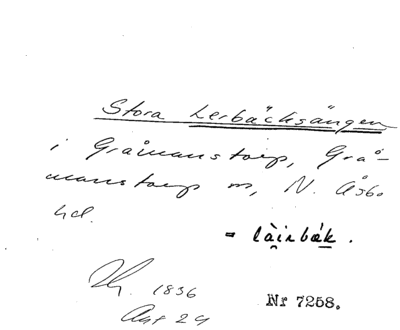 Stora Lerbäcksängen
i Gråmanstorp, Grå-
manstorp sn, N. Åsbo
hd.
= làirbák.
1836
Akt 29
Nr 7258.